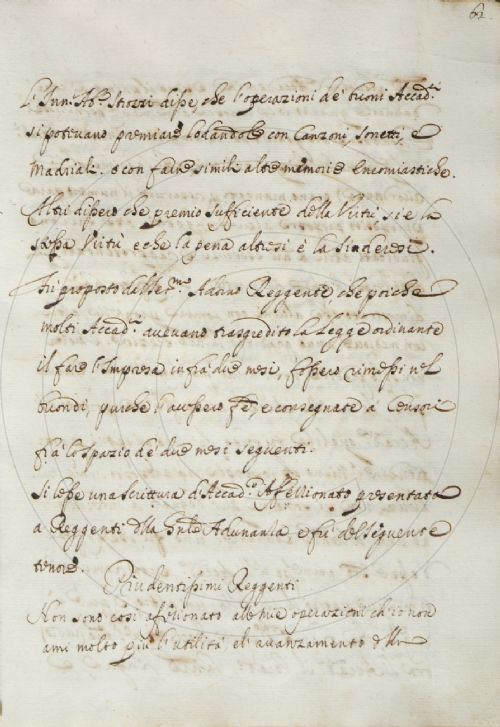 62
L'Inn. Ab.e Strozzi disse, che l'operazioni de' buoni Accad.ci
si potevano premiare lodandole con Canzoni, Sonetti, e
Madriali. o con fare simili altre memorie Encomiastiche.
Altri dissero che premio sufficiente della Virtù, si è la
stessa Virtù e che la pena altresì è la Sinderesi.
Fu proposto dal Ser.mo Adorno Reggente che poiche
molti Accad.ci avevano trasgredito la Legge ordinante
il fare l'Impresa infra due mesi, fossero rimessi nel
buondì, purche l'avessero fatte, e consegnate a Censori
fra lo spazio de' due mesi seguenti.
Si lesse una Scrittura d'Accad.co Affezzionato presentata
a Reggenti della Adunanza, e fù del seguente
tenore.
Prudentissimi Reggenti
Non sono così affezionato alle mie operazioni ch'io non
ami molto più l'utilità, e l'avanzamento della